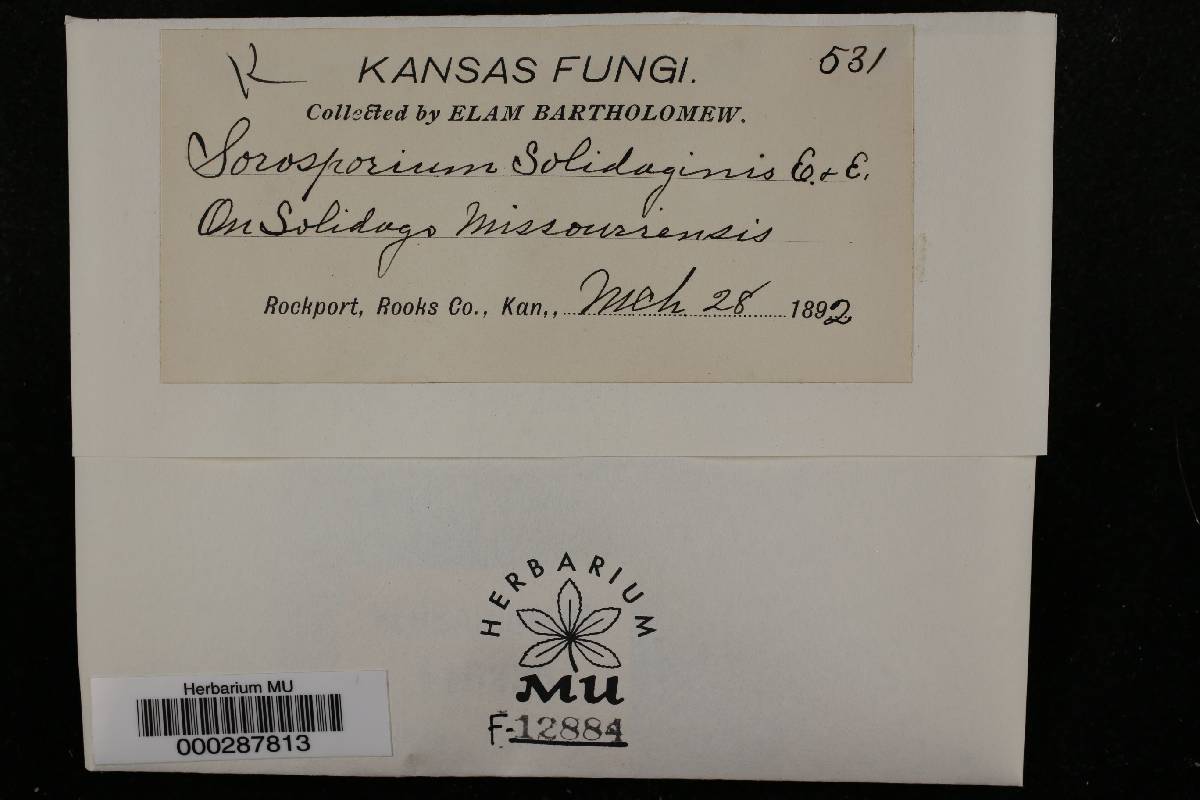 K KANSAS FUNGI. 531
Collected by ELAM BARTHOLOMEW.
Sorosporium Solidaginis E. & E.
On Solidago Missouriensis
Rockport, Rooks Co., Kan,, Mch 28 1892
HERBARIUM
MU
F-12884
Herbarium MU
000287813